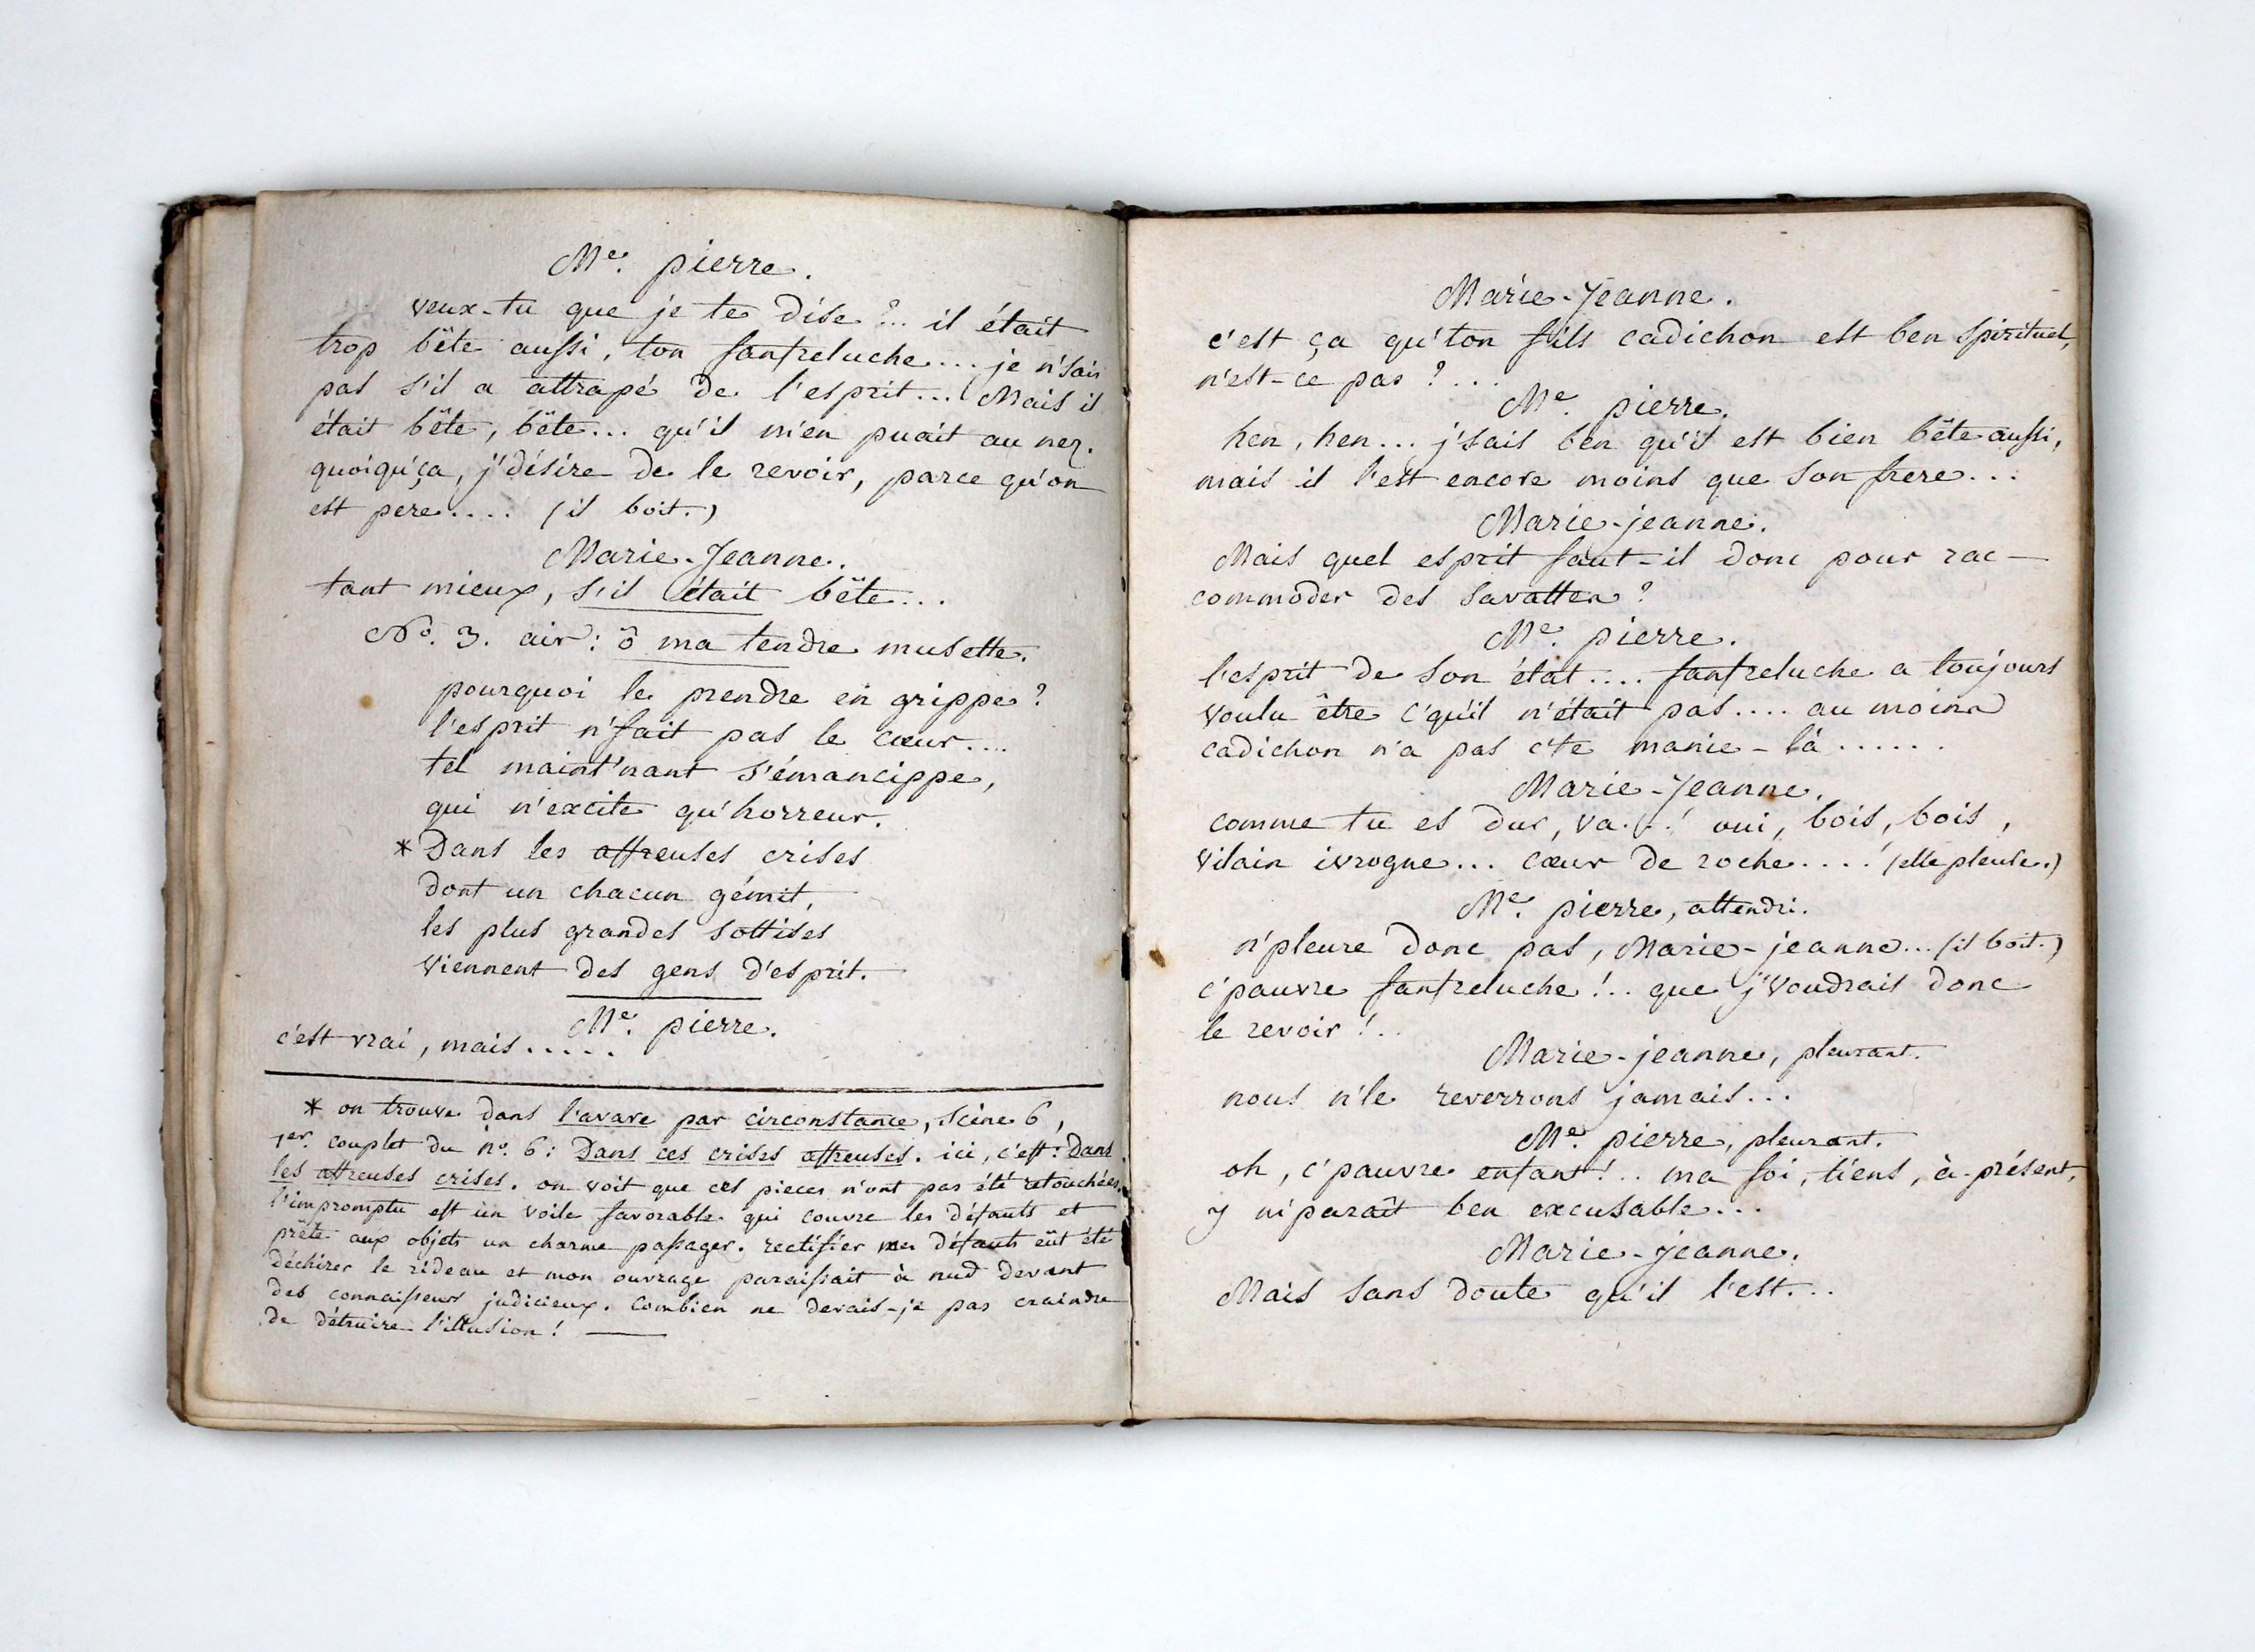 Me. pierre.
veux-tu que je te dise?... il était
trop bête aussi, ton fanfreluche... je n'sais
pas s'il a attrapé de l'esprit... Mais il
était bête, bête... qu'il m'en puait au nez.
quoiqu'ça, j'désire de le revoir, parce qu'on
est pere.... (il boit.)
Marie-Jeanne.
tant mieux, s'il était bête...
No. 3. air: ô ma tendre musette.
pourquoi le prendre en grippe?
l'esprit n'fait pas le cœur....
tel maint'nant s'émancippe,
qui n'excite qu'horreur.
* Dans les affreuses crises
dont un chacun gémit,
les plus grandes sottises
viennent des gens d'esprit.
Me. pierre.
c'est vrai, mais.....
* on trouve dans l'avare par circonstance, scène 6,
1er. couplet du no. 6: Dans ces crises affreuses. ici, c'est: Dans
les affreuses crises. on voit que ces pieces n'ont pas été retouchées.
l'impromptu est un voile favorable qui couvre les défauts et
prête aux objets un charme passager. rectifier mes défauts eût été
déchirer le rideau et mon ouvrage paraissait à nud devant
des connaisseurs judicieux. Combien ne devais-je pas craindre
de détruire l'illusion!
Marie-Jeanne.
c'est ça qu'ton fils cadichon est ben spirituel,
n'est-ce pas?...
Me. pierre.
hen, hen... j'sais ben qu'il est bien bête aussi,
mais il l'est encore moins que son frere...
Marie-jeanne.
Mais quel esprit faut-il donc pour rac-
commoder des savattes?
Me. pierre.
l'esprit de son état.... fanfreluche a toujours
voulu être c'qu'il n'était pas.... au moins
cadichon n'a pas c'te manie-là......
Marie-Jeanne.
comme tu es dur, va...! oui, bois, bois,
vilain ivrogne... cœur de roche....! (elle pleure.)
Me. pierre, attendri.
n'pleure donc pas, Marie-jeanne... (il boit.)
c'pauvre fanfreluche!.. que j'voudrais donc
le revoir!..
Marie-jeanne, pleurant.
nous n'le reverrons jamais...
Me. pierre, pleurant.
oh, c'pauvre enfant!.. ma foi, tiens, à-présent,
y m'paraît ben excusable...
Marie-jeanne.
Mais sans doute qu'il l'est...